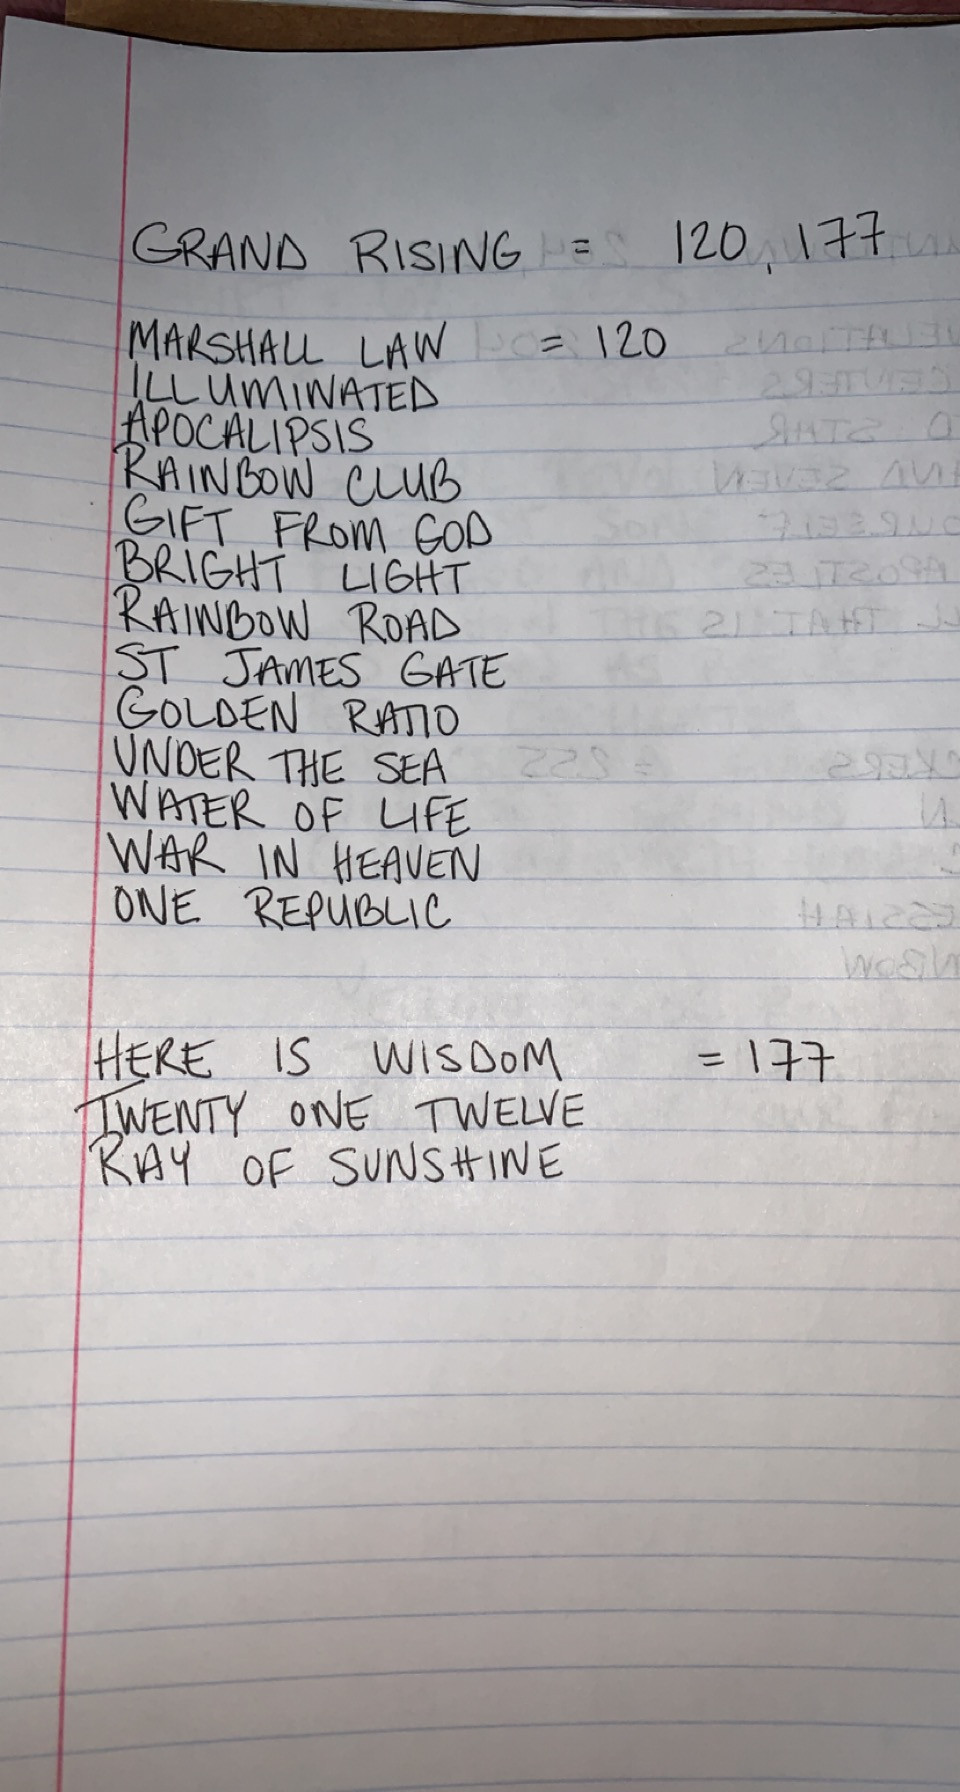 GRAND RISING = 120, 177
MARSHALL LAW = 120
ILLUMINATED
APOCALIPSIS
RAINBOW CLUB
GIFT FROM GOD
BRIGHT LIGHT
RAINBOW ROAD
ST JAMES GATE
GOLDEN RATIO
UNDER THE SEA
WATER OF LIFE
WAR IN HEAVEN
ONE REPUBLIC
HERE IS WISDOM = 177
TWENTY ONE TWELVE
RAY OF SUNSHINE